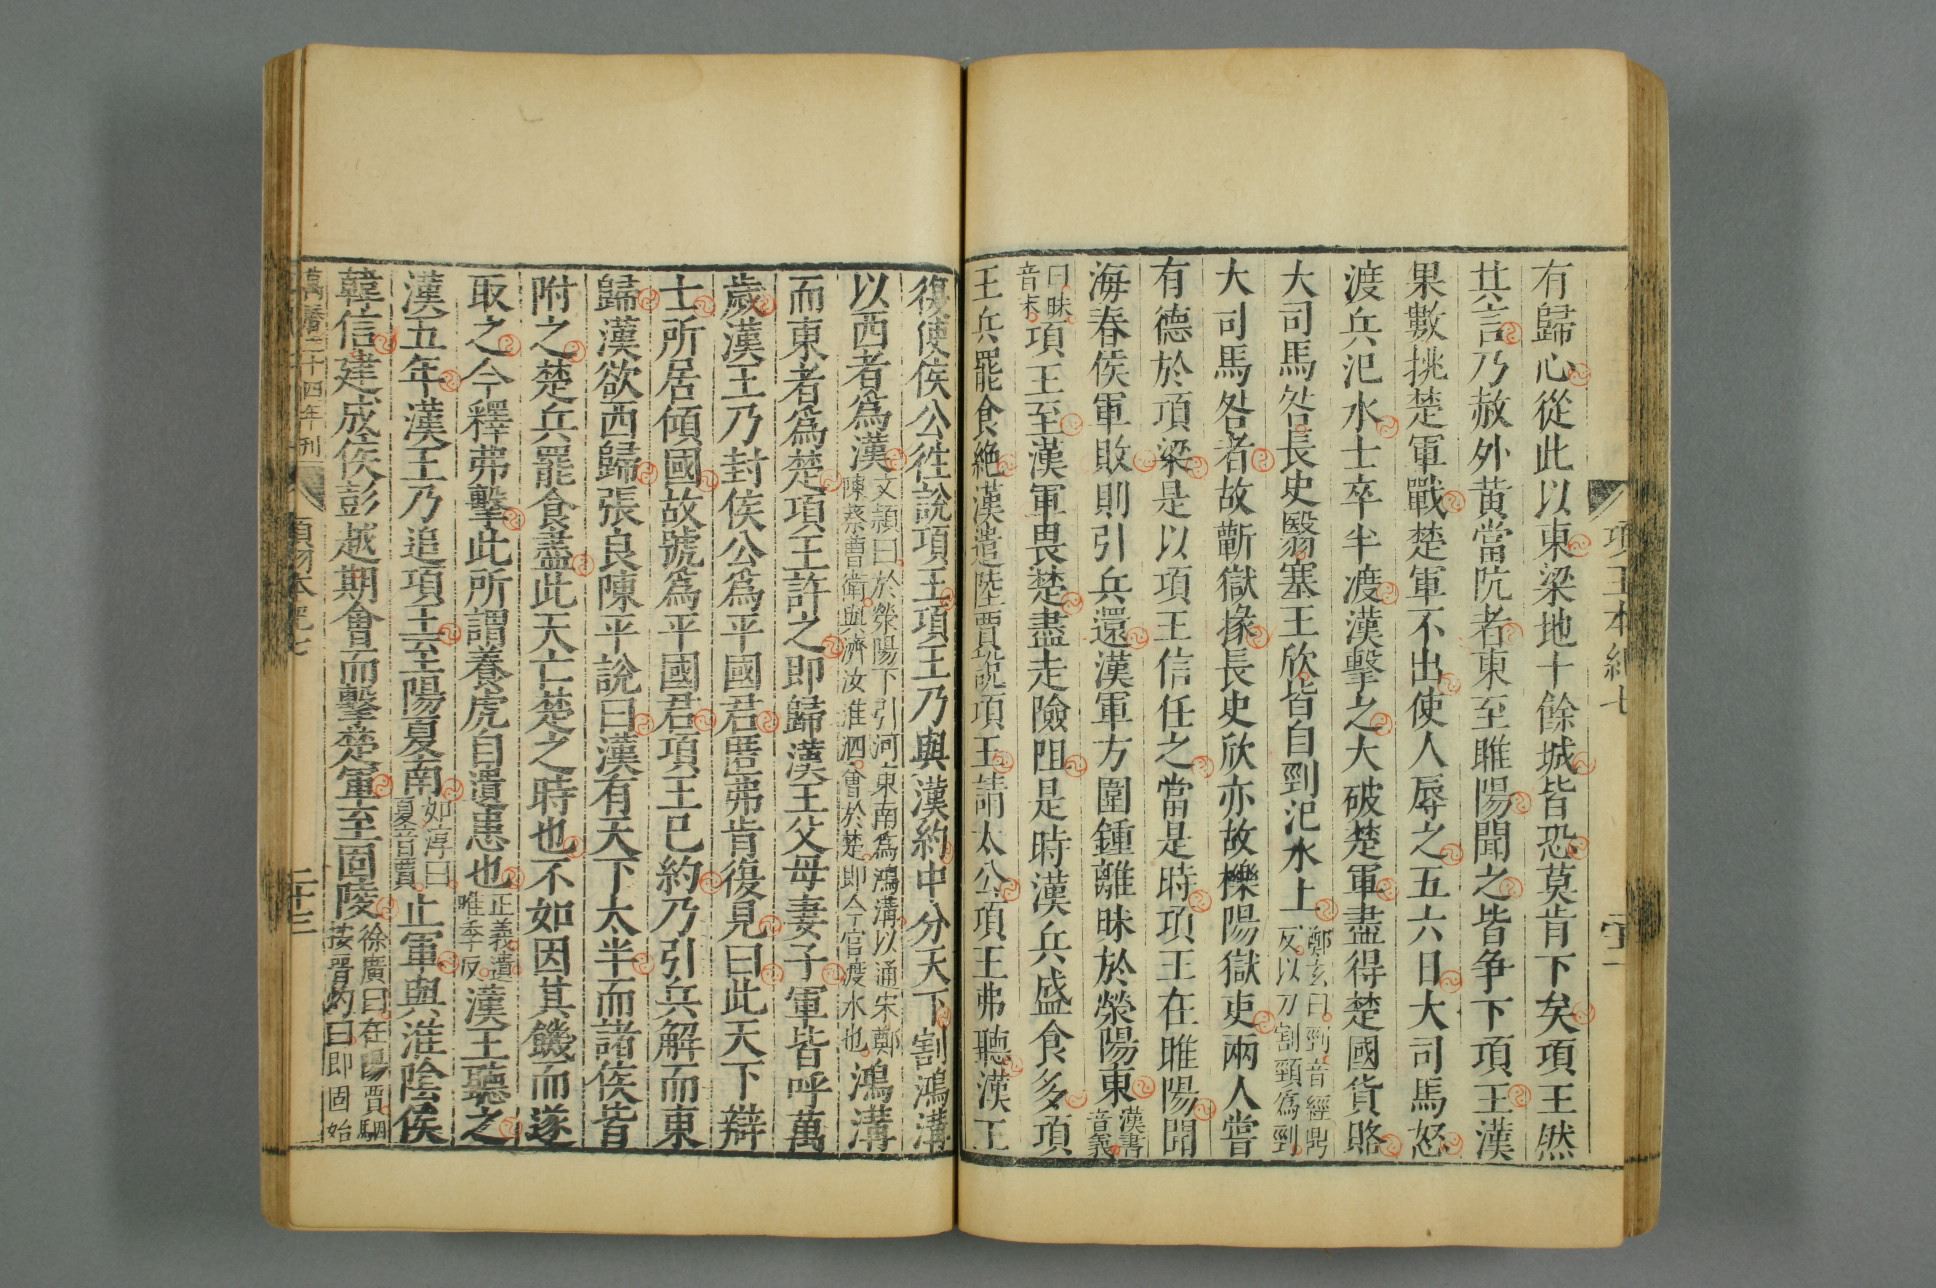 有歸心從此以東梁地十餘城皆恐莫肯下矣項王然
其言乃赦外黃當阬者東至睢陽聞之皆争下項王漢
果數挑楚軍戰楚軍不出使人辱之五六日大司馬怒
渡兵汜水士卒半渡漢擊之大破楚軍盡得楚國貨賂
大司馬咎長史翳塞王欣皆自剄汜水上鄭玄曰剄音經鼎反以刀割頸爲剄
大司馬咎者故蘄獄掾長史欣亦故櫟陽獄吏兩人嘗
有德於項梁是以項王信任之當是時項王在睢陽聞
海春侯軍敗則引兵還漢軍方圍鍾離眛於滎陽東漢書音義
曰眛音末項王至漢軍畏楚盡走險阻是時漢兵盛食多項
王兵罷食絶漢遣陸賈說項王請太公項王弗聽漢王
項王本紀七
復使侯公徃說項王項王乃與漢約中分天下割鴻溝
以西者爲漢文頴曰於滎陽下引河東南爲鴻溝以通宋鄭陳蔡曹衛與濟汝淮泗會於楚即今官渡水也鴻溝
而東者爲楚項王許之即歸漢王父母妻子軍皆呼萬
歲漢王乃封侯公爲平國君匿弗肯復見曰此天下辯
士所居傾國故號爲平國君項王已約乃引兵解而東
歸漢欲西歸張良陳平說曰漢有天下太半而諸侯皆
附之楚兵罷食盡此天亡楚之時也不如因其饑而遂
取之今釋弗擊此所謂養虎自遺患也正義遺唯季反漢王聽之
漢五年漢王乃追項王至陽夏南如淳曰夏音賈止軍與淮陰侯
韓信建成侯彭越期會而擊楚軍至固陵徐廣曰在陽夏駰按晉灼曰即固始
二十四年刊
項羽本紀七
二十三